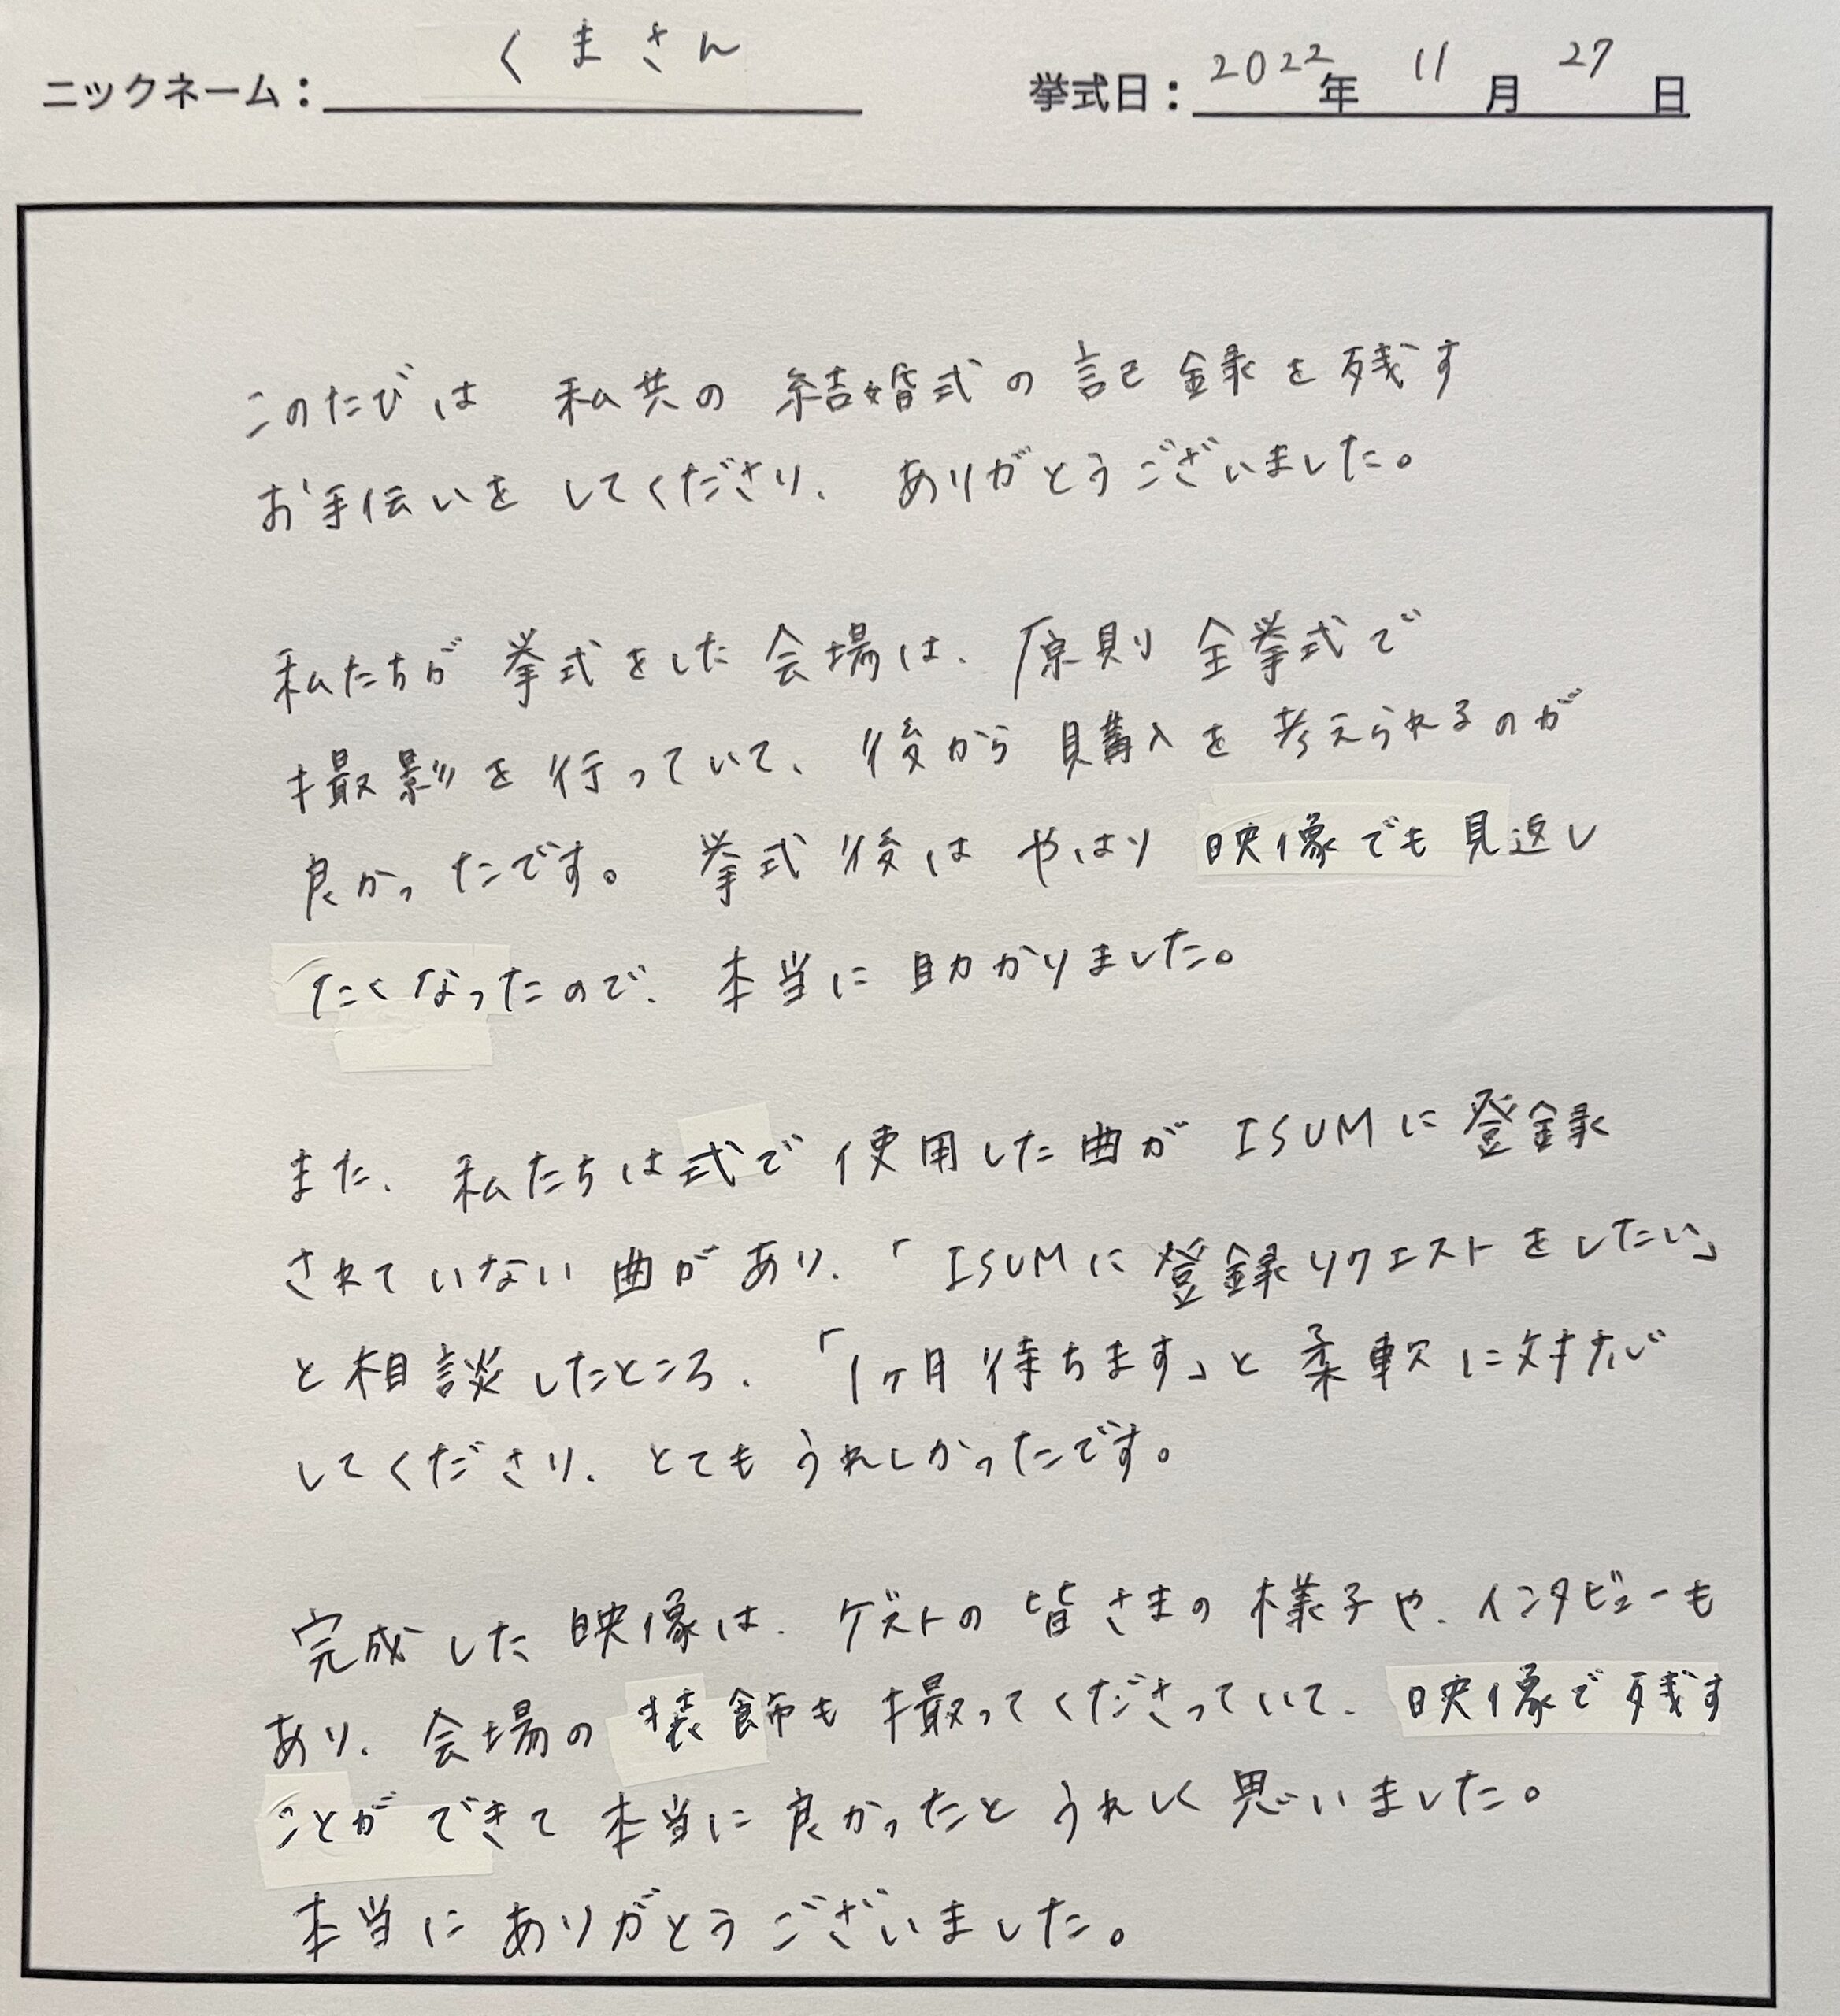 ニックネーム：くまさん 挙式日：2022年 11月 27日
このたびは 私共の 結婚式の 記録を残す
お手伝いを してくださり、ありがとうございました。
私たちが 挙式をした会場は、原則 全挙式で
撮影を行っていて、後から 購入を 考えられるのが
良かったです。 挙式後は やはり 映像でも見返し
たくなったので、本当に 助かりました。
また、私たちは式で 使用した曲が ISUMに 登録
されていない 曲が あり、「ISUMに 登録リクエストをしたい」
と相談したところ、「1ヶ月待ちます」と 柔軟に対応
してくださり、とても うれしかったです。
完成した 映像は、ゲストの 皆さまの 様子や、インタビューも
あり、会場の 装飾も 撮ってくださっていて、映像で残す
ことが できて 本当に 良かったと うれしく 思いました。
本当に ありがとうございました。